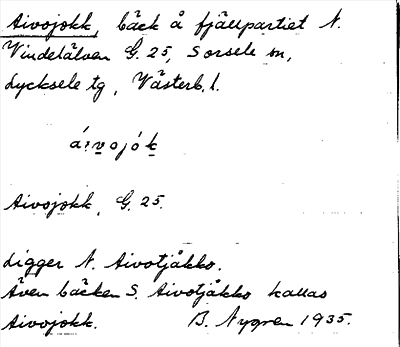 Aivojokk, bäck å fjällpartiet N.
Vindelälven G. 25, Sorsele sn,
Lycksele tg, Västerb. l.
á i̯ v o j ó k
Aivojokk, G. 25.
Ligger N. Aivotjåkko.
Även bäcken S. Aivotjåkko kallas
Aivojokk. B. Nygren 1935.